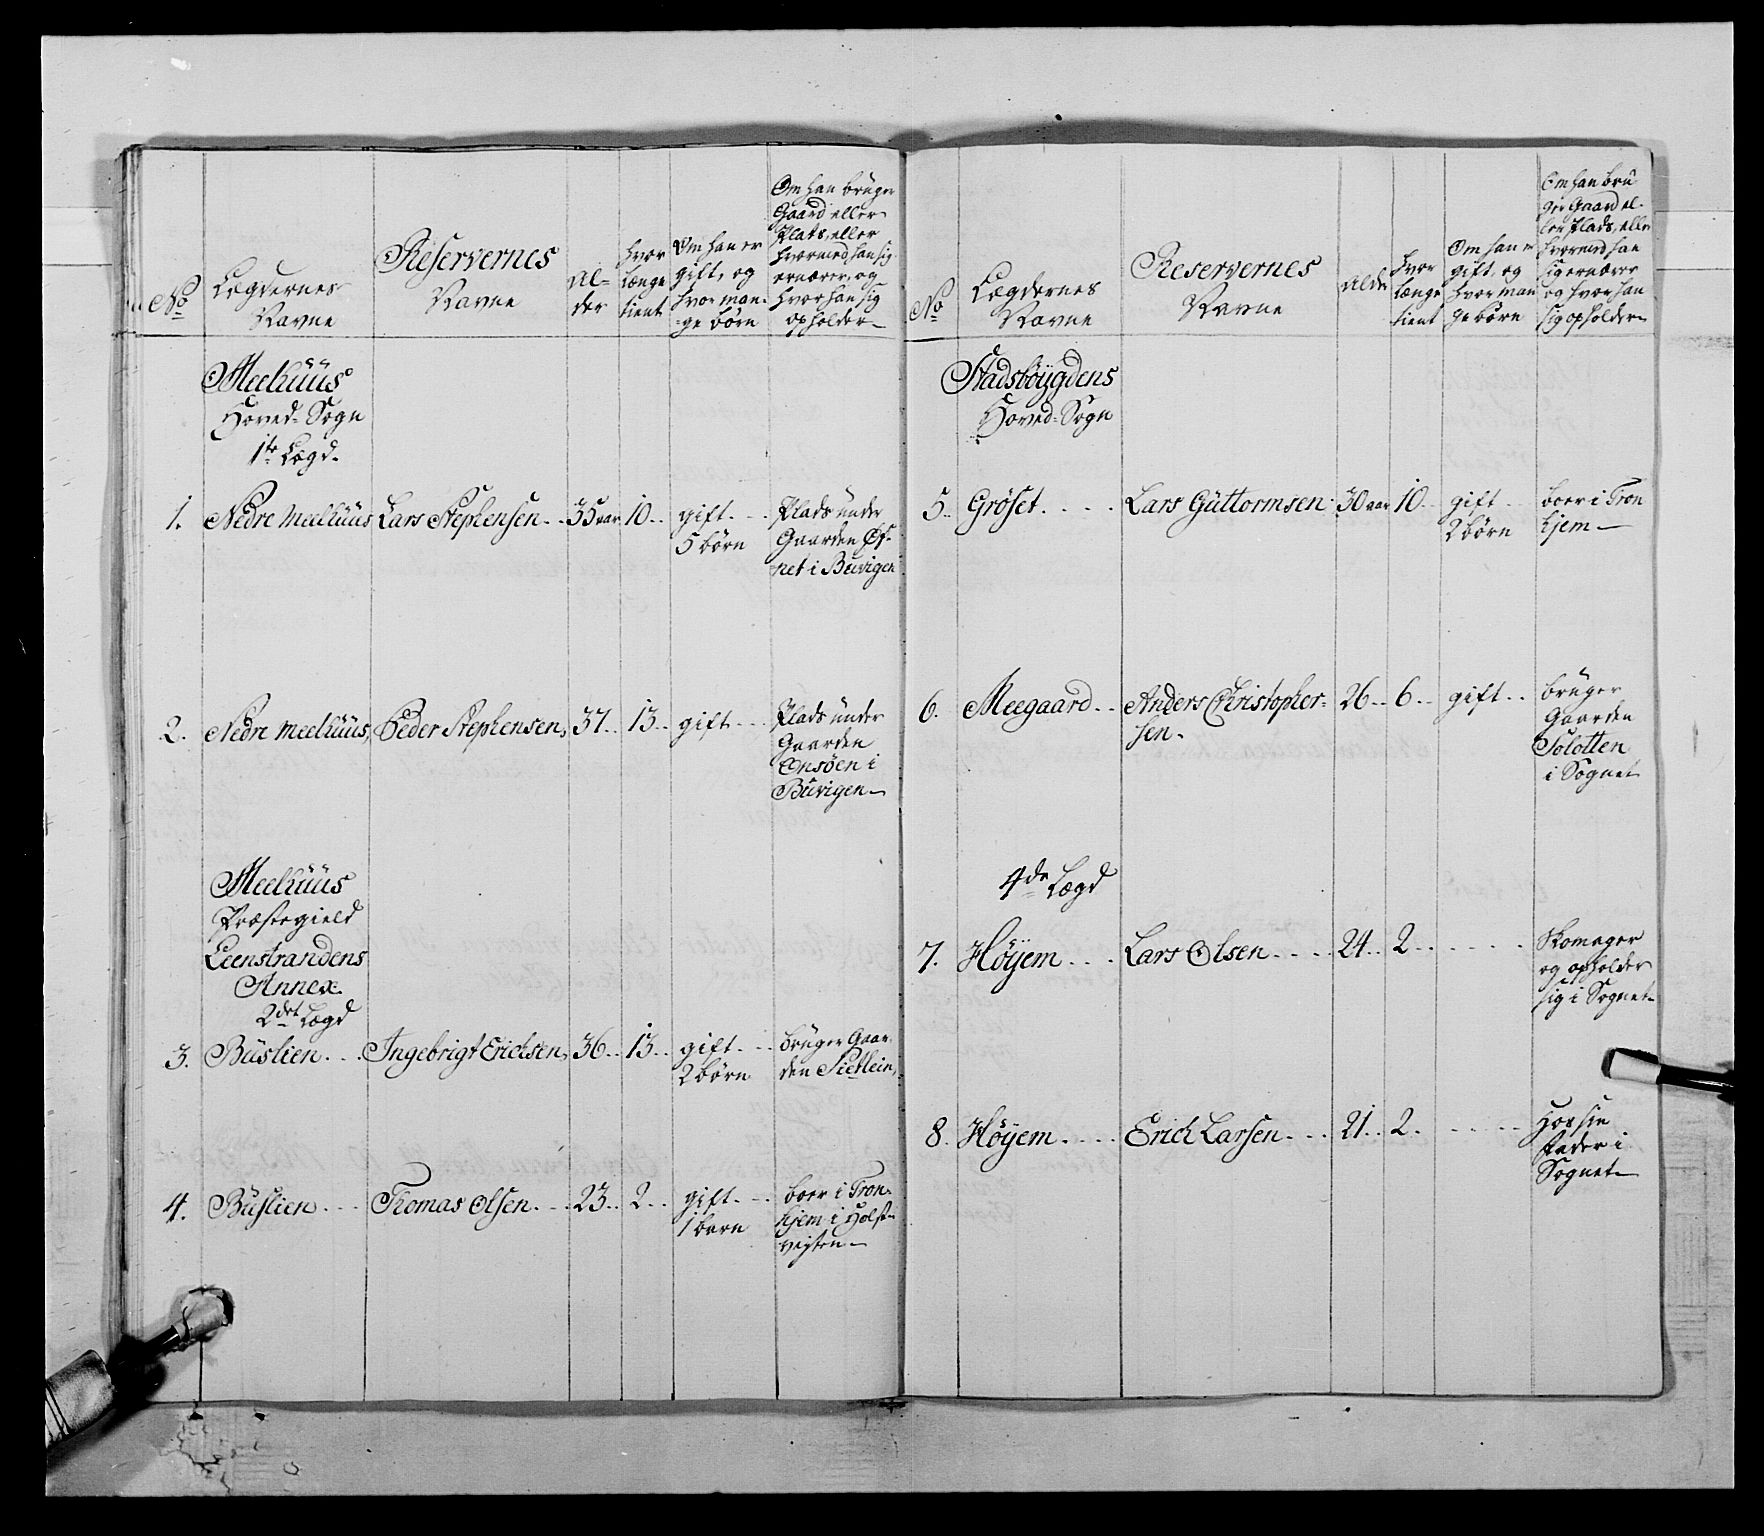 No
Lægdernes
Navne
Reservernes
Navne
Al-
der
hvor
længe
tient
Om han er
gift, og
hvor man-
ge børn
Om han bruger
Gaard eller
Plats, eller
hvormed han sig
ernærer, og
hvor han sig
opholder
Meelhüüs
Hoved-Sogn
1te Lægd.
1. Nedre Meelhüüs Lars Stephensen .. 35 aar 10 .. gift . . .
5 børn
Plads under
Gaarden Øf-
net i Buvigen
2. Nedre Meelhüüs, Peder Stephensen, 37 .. 13 .. gift . . .
Plads under
Gaarden
Onsøen i
Buvigen
Meelhüüs
Præstegield
Leenstrandens
Annex.
2det Lægd
3. Büslien . . . Ingebrigt Erichsen, 36 .. 13 .. gift . . .
2 børn
bruger Gaar-
den
4. Büslien . . . Thomas Olsen . . . 23 .. 2 .. gift . . .
1 barn
boer i Tron-
hjem i
No
Lægdernes
Navne
Reservernes
Navne
Alder
hvor
længe
tient
Om han er
gift, og
hvor man
ge børn
Om han bru
ger Gaard el-
ler Plads, eller
hvormed han
sig ernærer
og hvor han
sig opholder
Stadsbøygdens
Hoved-Sogn
5. Grøset . . . . Lars Güttormsen 30 aar 10 . gift .
2 børn
boer i Tron
hjem
6. Meegaard .. Anders Christopher-
sen.
26 .. 6 .. gift ..
bruger
Gaarden
Solotten
i Sognet
4de Lægd
7. Høÿem . . . Lars Olsen . . . . 24 .. 2 . . . . . .
Skomager
og opholder
sig i Sognet
8. Høÿem . . . . Erich Larsen . . . 21 .. 2 . . . . . .
Hos sin
Fader i
Sognet